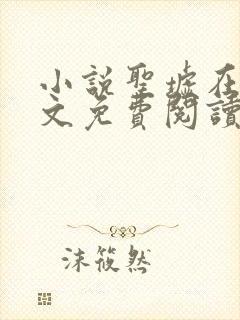 小說聖墟在
文免費閱讀
沫筱然